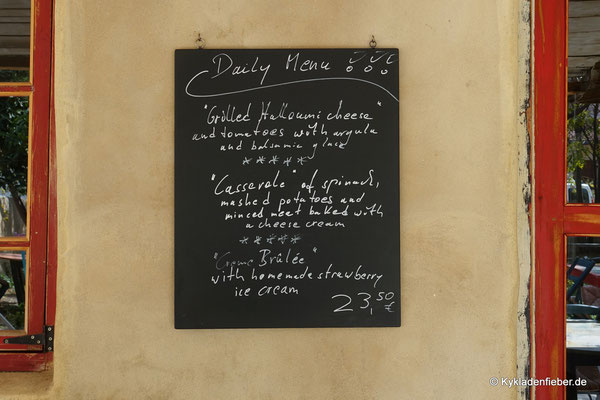 Daily Menu
"Grilled Halloumi cheese"
and tomatoes with argula
and balsamic glace
*****
"Casserole" of spinach,
mashed potatoes and
minced meat baked with
a cheese cream
*****
"Creme Brûlée"
with homemade strawberry
ice cream
23,50 €
© Kykladenfieber.de